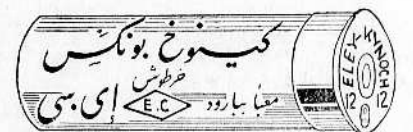 كينوخ بونكس
خرطوش
معبأ ببارود E.C إى سى
ELEY-KYNOCH
12 12